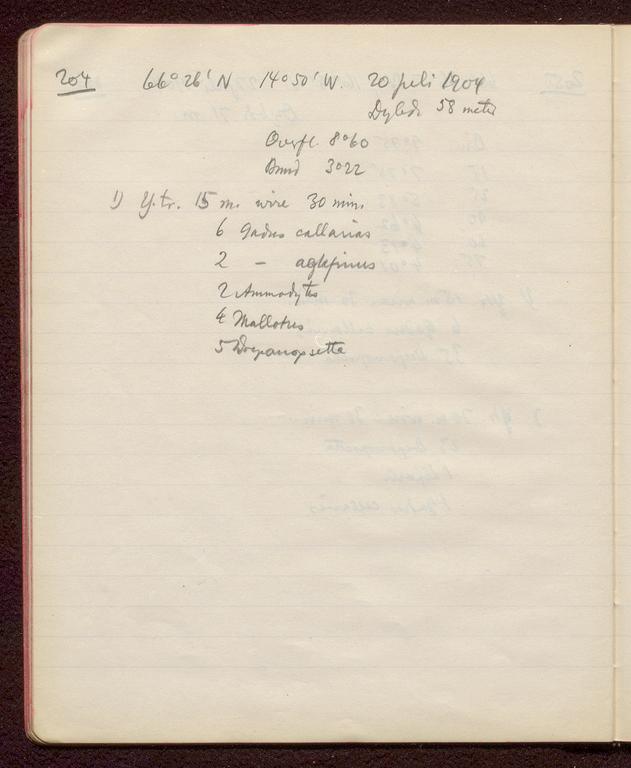 204 66° 26' N 14° 50' W. 20 juli 1904
Dybde 58 meter
Overfl. 8°60
Bund 3°22
1) Y. tr. 15 m. wire 30 min.
6 Gadus callarias
2 — æglefinus
2 Ammodytes
4 Mallotus
5 Drepanopsetta